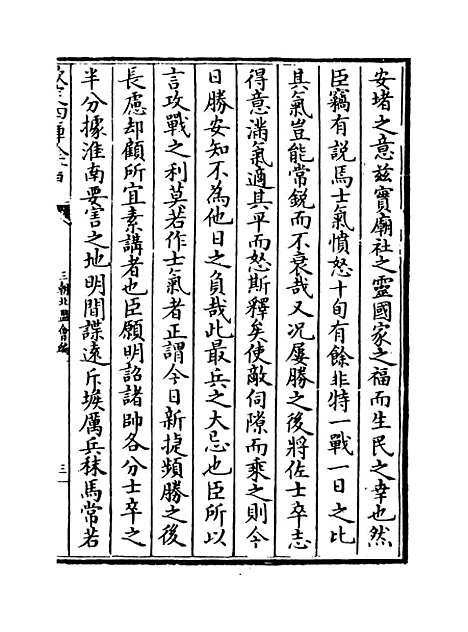 安堵之意兹實廟社之靈國家之福而生民之幸也然
臣竊有説焉士氣憤怒十旬有餘非特一戰一日之比
其氣豈能常鋭而不衰哉又况屢勝之後將佐士卒志
得意滿氣適其平而怒斯釋矣使敵伺隙而乘之則今
日勝安知不為他日之負哉此最兵之大忌也臣所以
言攻戰之利莫若作士氣者正謂今日新捷頻勝之後
長慮却顧所宜素講者也臣願明詔諸帥各分士卒之
半分據淮南要害之地明間諜遠斥堠厲兵秣馬常若
三朝北盟會編
三